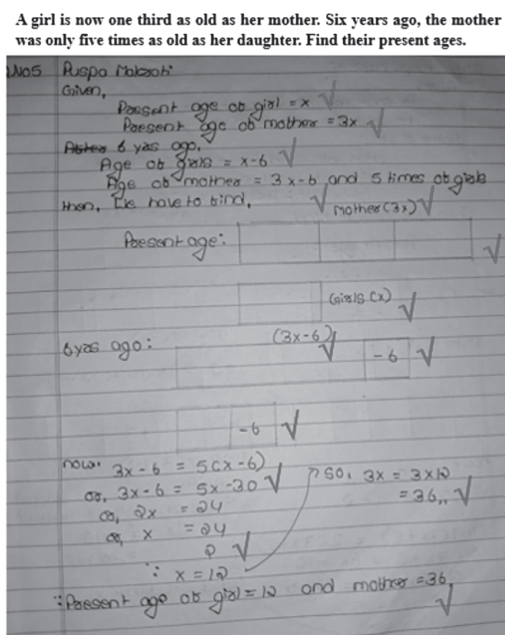 A girl is now one third as old as her mother. Six years ago, the mother
was only five times as old as her daughter. Find their present ages.
No5 Puspa
Given,
Present age of girl = x
Present age of mother = 3x
6 yrs ago,
Age of girls = x-6
Age of mother = 3x-6 and 5 times of girls
then, We have to find,
Mother (3x)
Present age:
Girls (x)
6 yrs ago:
(3x-6)
-6
-6
now, 3x-6 = 5(x-6)
or, 3x-6 = 5x-30
or, 2x = 24
or, x = 24
2
∵ x = 12
so, 3x = 3x12
= 36,,
∵ Present age of girl = 12 and mother = 36,